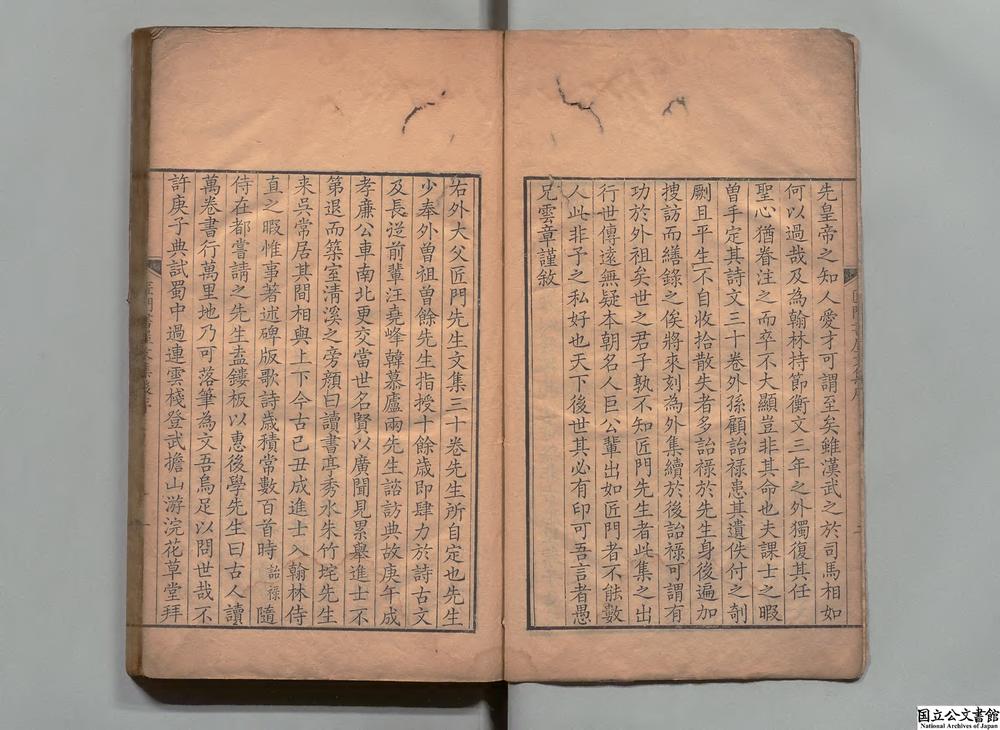 先皇帝之知人愛才可謂至矣雖漢武之於司馬相如
何以過哉及為翰林持節衡文三年之外獨復其任
聖心猶眷注之而卒不大顯豈非其命也夫課士之暇
曾手定其詩文三十卷外孫顧詒祿患其遺佚付之剞
劂且平生不自收拾散失者多詒祿於先生身後遍加
搜訪而繕錄之俟將來刻為外集續於後詒祿可謂有
功於外祖矣世之君子孰不知匠門先生者此集之出
行世傳遠無疑本朝名人巨公輩出如匠門者不能數
人此非予之私好也天下後世其必有印可吾言者愚
兄雲章謹敘
右外大父匠門先生文集三十卷先生所自定也先生
少奉外曾祖曾餘先生指授十餘歲即肆力於詩古文
及長從前輩汪堯峰韓慕廬兩先生諮訪典故庚午成
孝廉公車南北更交當世名賢以廣聞見累舉進士不
第退而築室清溪之旁顏曰讀書亭秀水朱竹垞先生
来吳常居其間相與上下今古己丑成進士入翰林侍
直之暇惟事著述碑版歌詩歲積常數百首時詒祿隨
侍在都嘗請之先生盍鏤板以惠後學先生曰古人讀
萬卷書行萬里地乃可落筆為文吾烏足以問世哉不
許庚子典試蜀中過連雲棧登武擔山游浣花草堂拜
国立公文書館
National Archives of Japan